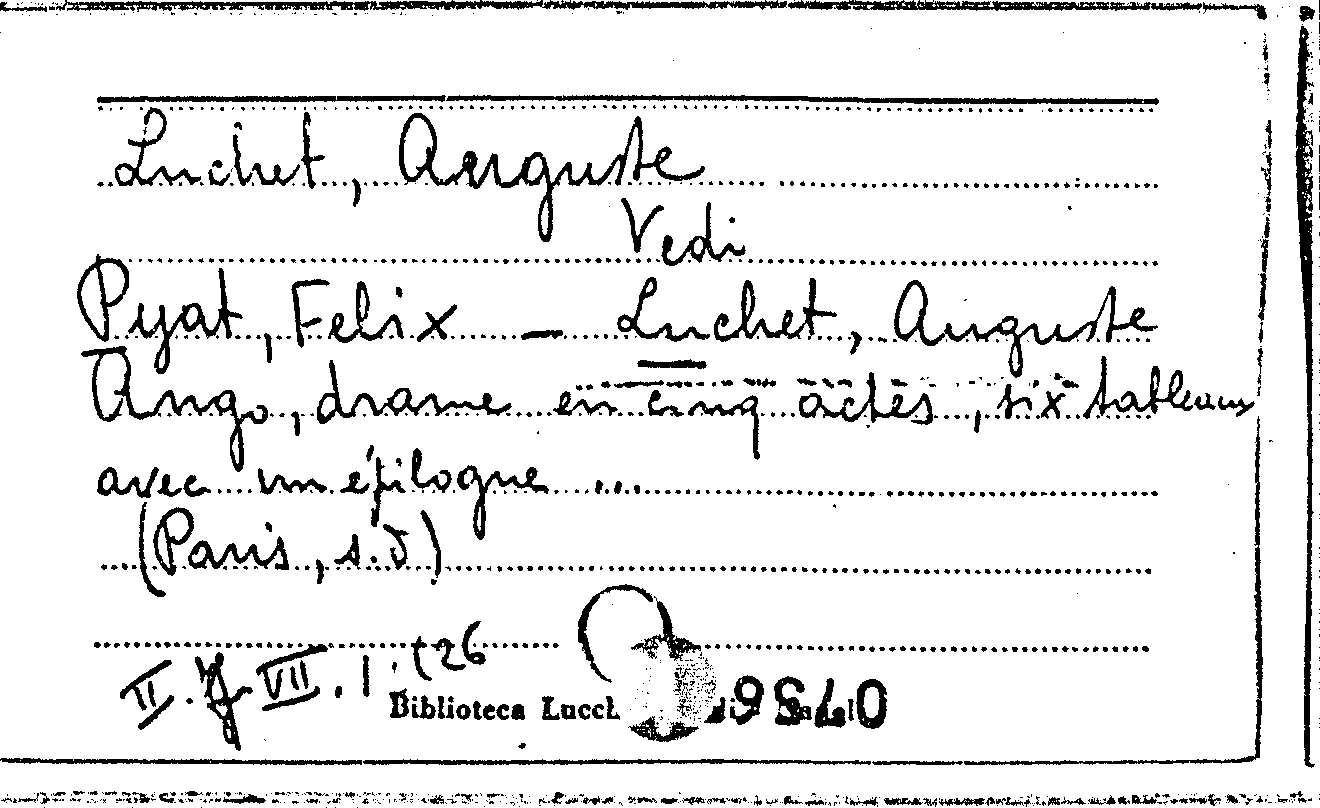 Luchet, Auguste
Vedi
Pyat, Felix - Luchet, Auguste
Ango, drame en cinq actes, six tableaux
avec un épilogue ...
(Paris, s.d)
II. J. VII. 1. (26
Biblioteca Lucch